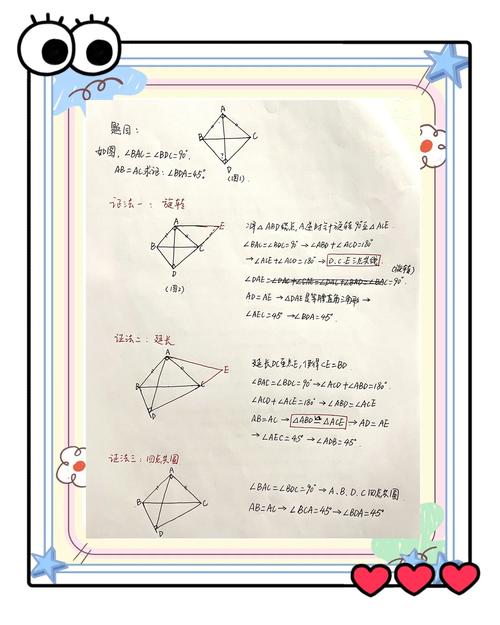 题目:
如图,∠BAC=∠BDC=90°,
AB=AC求证:∠BDA=45°
A
B
C
D
(图1)
证法一:旋转
A
E
B
C
D
(图2)
将△ABD绕点A逆时针旋转90°至△ACE
∠BAC=∠BDC=90°→∠ABD+∠ACD=180°
→∠ACE+∠ACD=180°→D.C.E三点共线
(旋转)
∠DAE=∠DAC+∠CAE=∠DAC+∠BAD=∠BAC=90°
AD=AE→△DAE是等腰直角三角形→
∠AEC=45°→∠BDA=45°.
证法二:延长
A
E
B
C
D
延长DC至点E,使得CE=BD.
∠BAC=∠BDC=90°→∠ACD+∠ABD=180°
∠ACD+∠ACE=180°→∠ABD=∠ACE
AB=AC→△ABD≌△ACE→AD=AE
→∠AEC=45°→∠ADB=45°.
证法三:四点共圆
A
B
C
D
∠BAC=∠BDC=90°→A.B.D.C四点共圆
AB=AC→∠BCA=45°→∠BDA=45°